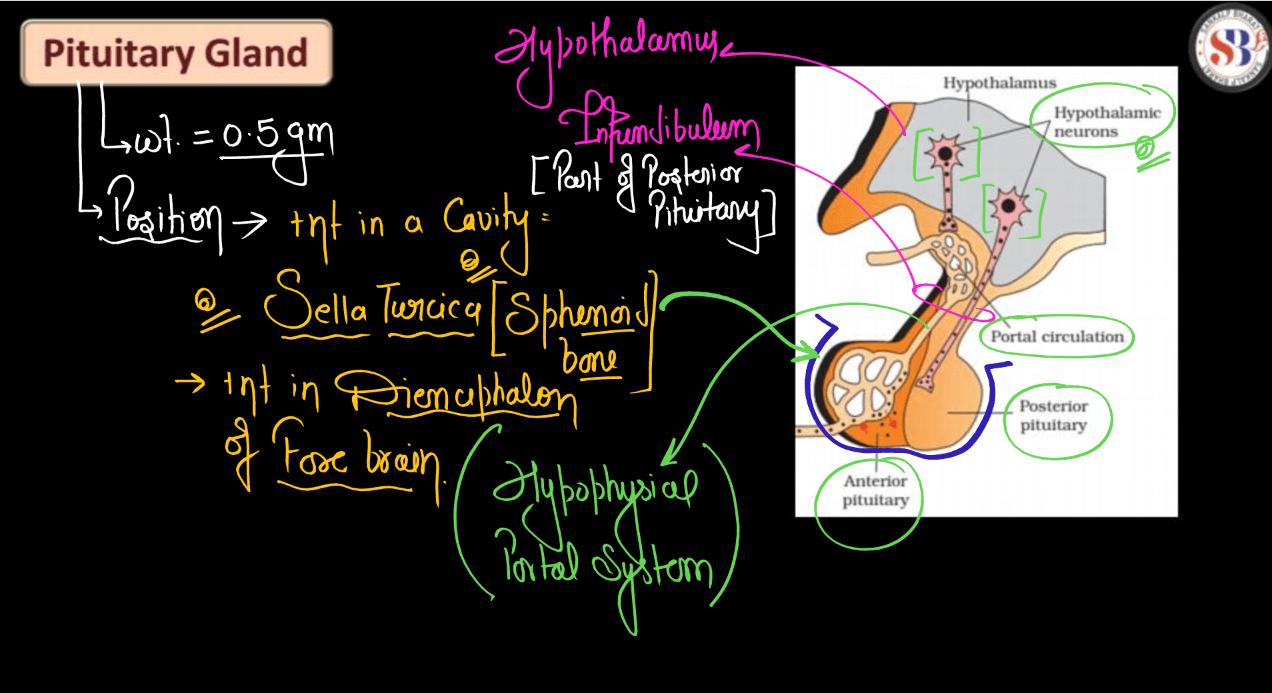 Pituitary Gland
wt. = 0.5 gm
Position → +nt in a Cavity =
Sella Turcica [Sphenoid
bone]
→ +nt in Diencephalon
of Fore brain.
Hypothalamus
Infundibulum
[Part of Posterior
Pituitary]
(Hypophysial
Portal System)
Hypothalamus
Hypothalamic
neurons
Portal circulation
Posterior
pituitary
Anterior
pituitary
SB